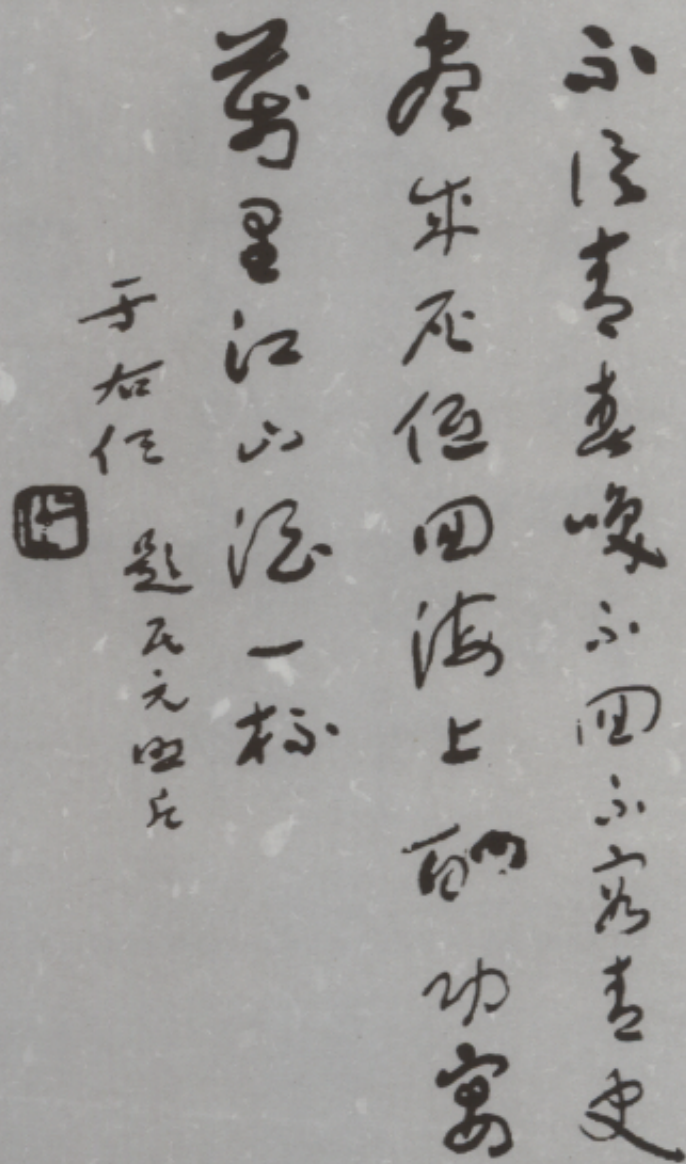 不信青春喚不回不容青史
盡成灰低回海上酬功宴
萬里江山酒一杯
題民元照片
于右任